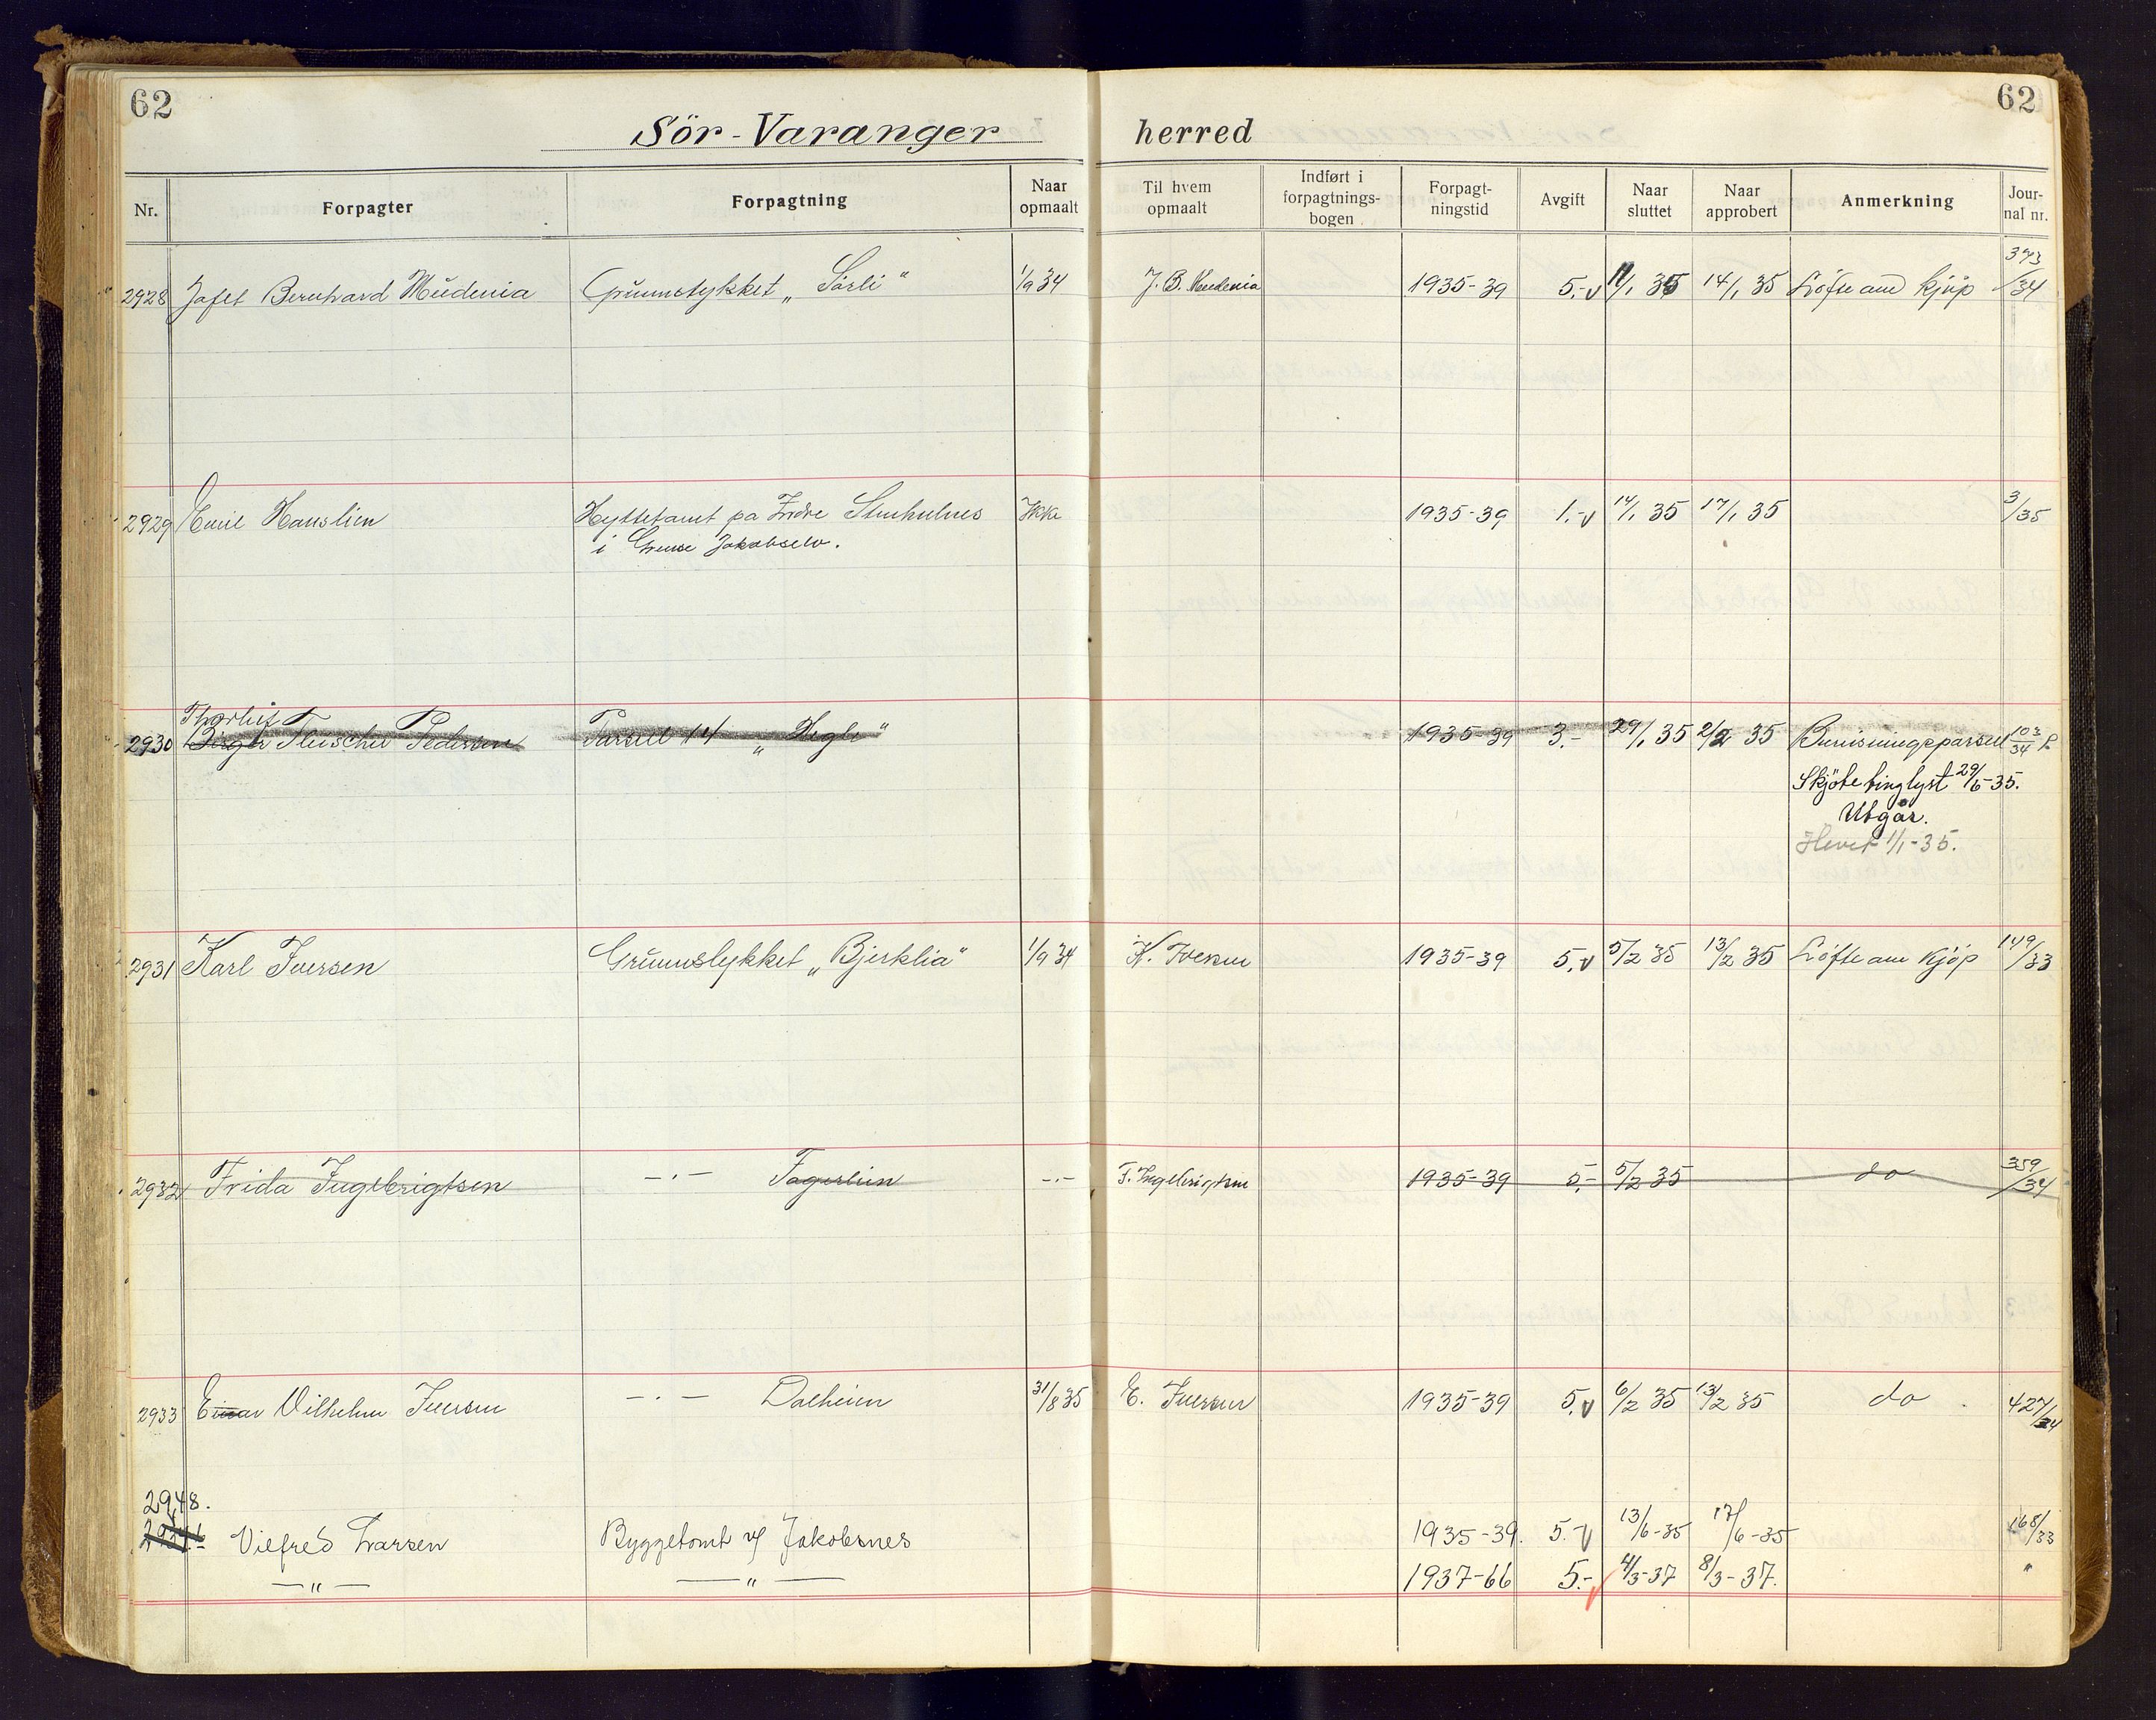 62
62
Sör-Varanger herred
Nr. Forpagter Forpagtning Naar opmaalt Til hvem opmaalt Indført i forpagtnings-bogen Forpagt-ningstid Avgift Naar sluttet Naar approbert Anmerkning Jour-nal nr.
2928 Jafet Bernhard Mudenia Grunnstykket „Sörli“ 1/9 34 J. B. Mudenia 1935-39 5.- v 11/1 35 14/1 35 Löfte om kjöp 373/34
2929 Emil Hanslien Hyttetomt på Indre 1935-39 1.- v 14/1 35 17/1 35 3/35
i Grense Jakobselv.
Thorleif
2930 Birger Fleischer Pedersen Parsell 14 „Hegli“ 1935-39 3.- 29/1 35 2/2 35 Bureisningsparsell 103/34
Skjöte tinglyst 29/5-35.
Utgår.
Hevet 1/1-35.
2931 Karl Iversen Grunnstykket „Bjerklia“ 1/9 34 K. Iversen 1935-39 5. v 5/2 35 13/2 35 Löfte om kjöp 149/33
2932 Frida Ingebrigtsen -.- Fagerlien -.- F. Ingebrigtsen 1935-39 5.- 5/2 35 do 359/34
2933 Einar Vilhelm Iversen -.- Dalheim 31/8 35 E. Iversen 1935-39 5. v 6/2 35 13/2 35 do 427/34
2948.
Vilfred Larsen Byggetomt v/ Jakobsnes 1935-39. 5.- v 13/6-35 17/6-35 168/33
-„- -„- 1937-66 5.- v 4/3-37 8/3-37. "